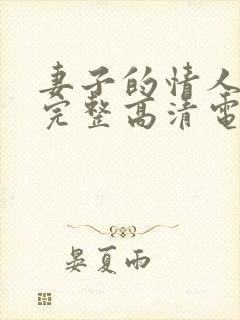 妻子的情人
完整高清電
晏夏雨